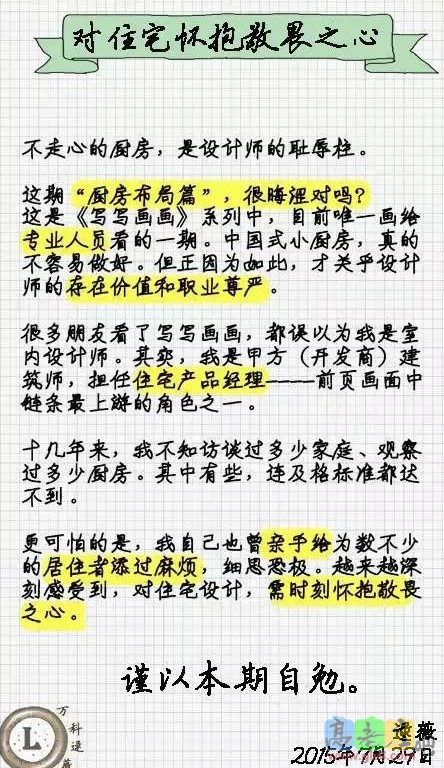 对住宅怀抱敬畏之心
不走心的厨房，是设计师的耻辱柱。
这期“厨房布局篇”，很晦涩对吗？
这是《写写画画》系列中，目前唯一画给
专业人员看的一期。中国式小厨房，真的
不容易做好。但正因为如此，才关乎设计
师的存在价值和职业尊严。
很多朋友看了写写画画，都误以为我是室
内设计师。其实，我是甲方（开发商）建
筑师，担任住宅产品经理——前页画面中
链条最上游的角色之一。
十几年来，我不知访谈过多少家庭、观察
过多少厨房。其中有些，连及格标准都达
不到。
更可怕的是，我自己也曾亲手给为数不少
的居住者添过麻烦，细思恐极。越来越深
刻感受到，对住宅设计，需时刻怀抱敬畏
之心。
谨以本期自勉。
万科逯薇
L
逯薇
2015年7月29日